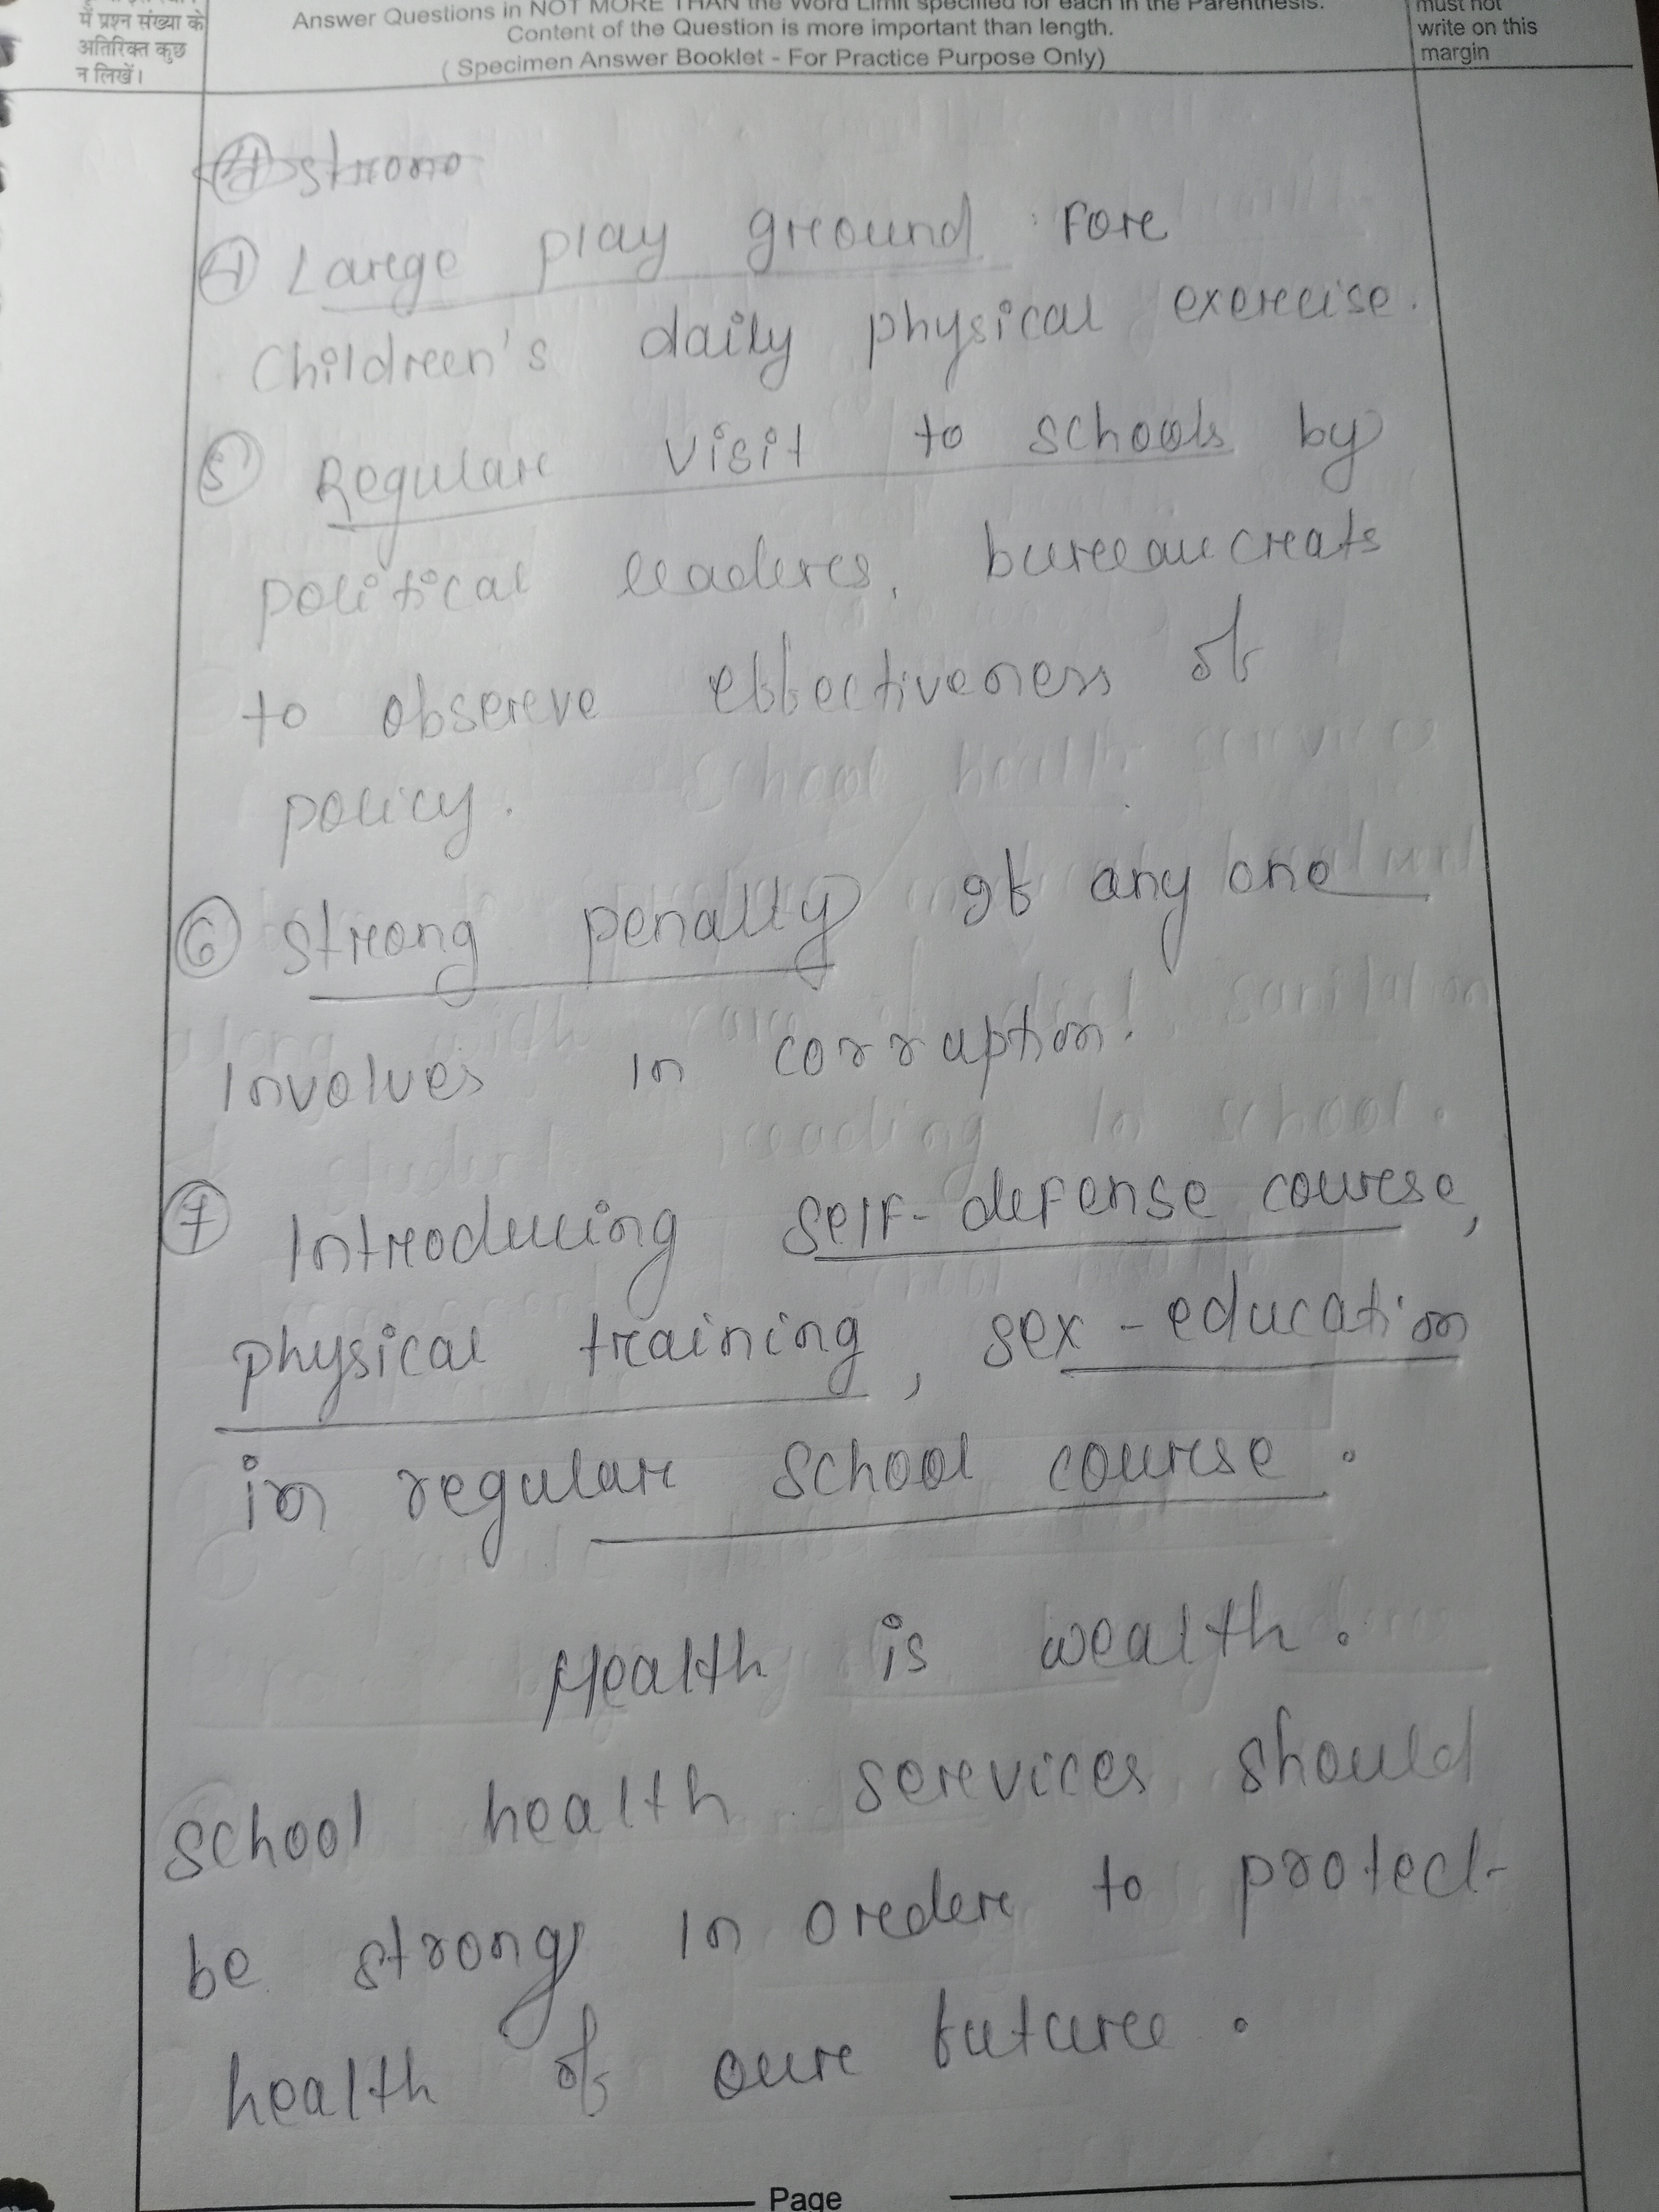 में प्रश्न संख्या के
अतिरिक्त कुछ
न लिखें।
Answer Questions in NOT MORE THAN the Word Limit specified for each in the Parenthesis.
Content of the Question is more important than length.
( Specimen Answer Booklet - For Practice Purpose Only)
must not
write on this
margin
④ Large play ground for
Children's daily physical exercise.
⑤ Regular visit to schools by
political leaders, bureaucrats
to observe effectiveness of
policy.
⑥ Strong penalty If any one
involves in corruption.
⑦ Introducing self-defense course,
physical training, sex-education
in regular school course.
Health is wealth.
School health services should
be strong in order to protect
health of our future.
Page